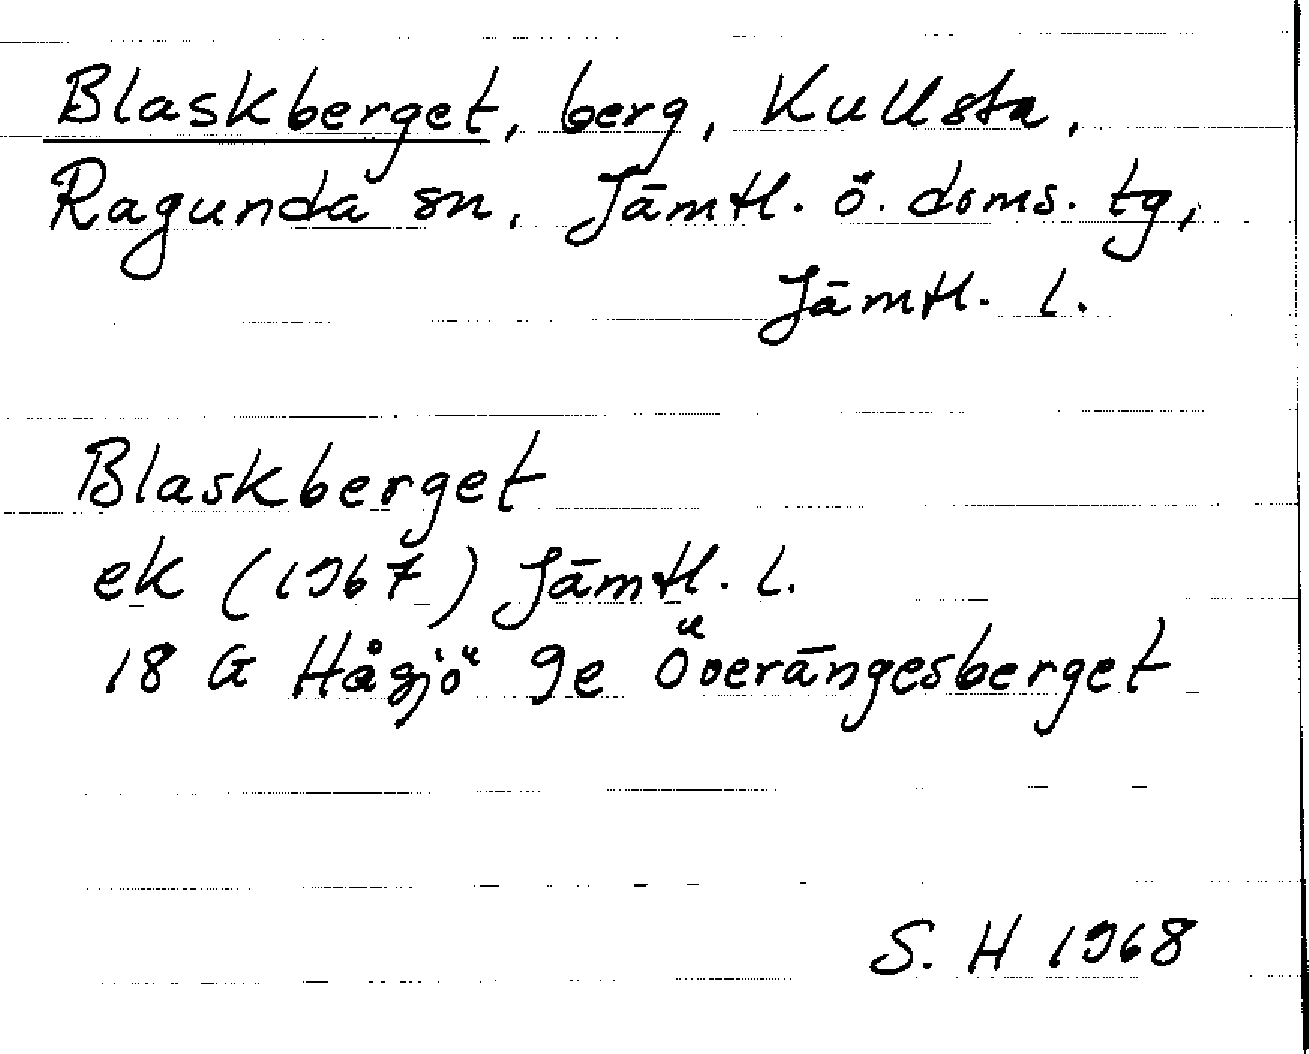 Blaskberget, berg, Kullsta,
Ragunda sn, Jämtl. ö. doms. tg,
Jämtl. l.
Blaskberget
ek (1967) Jämtl. l.
18 G Hågjö 9e Överängesberget
S. H 1968